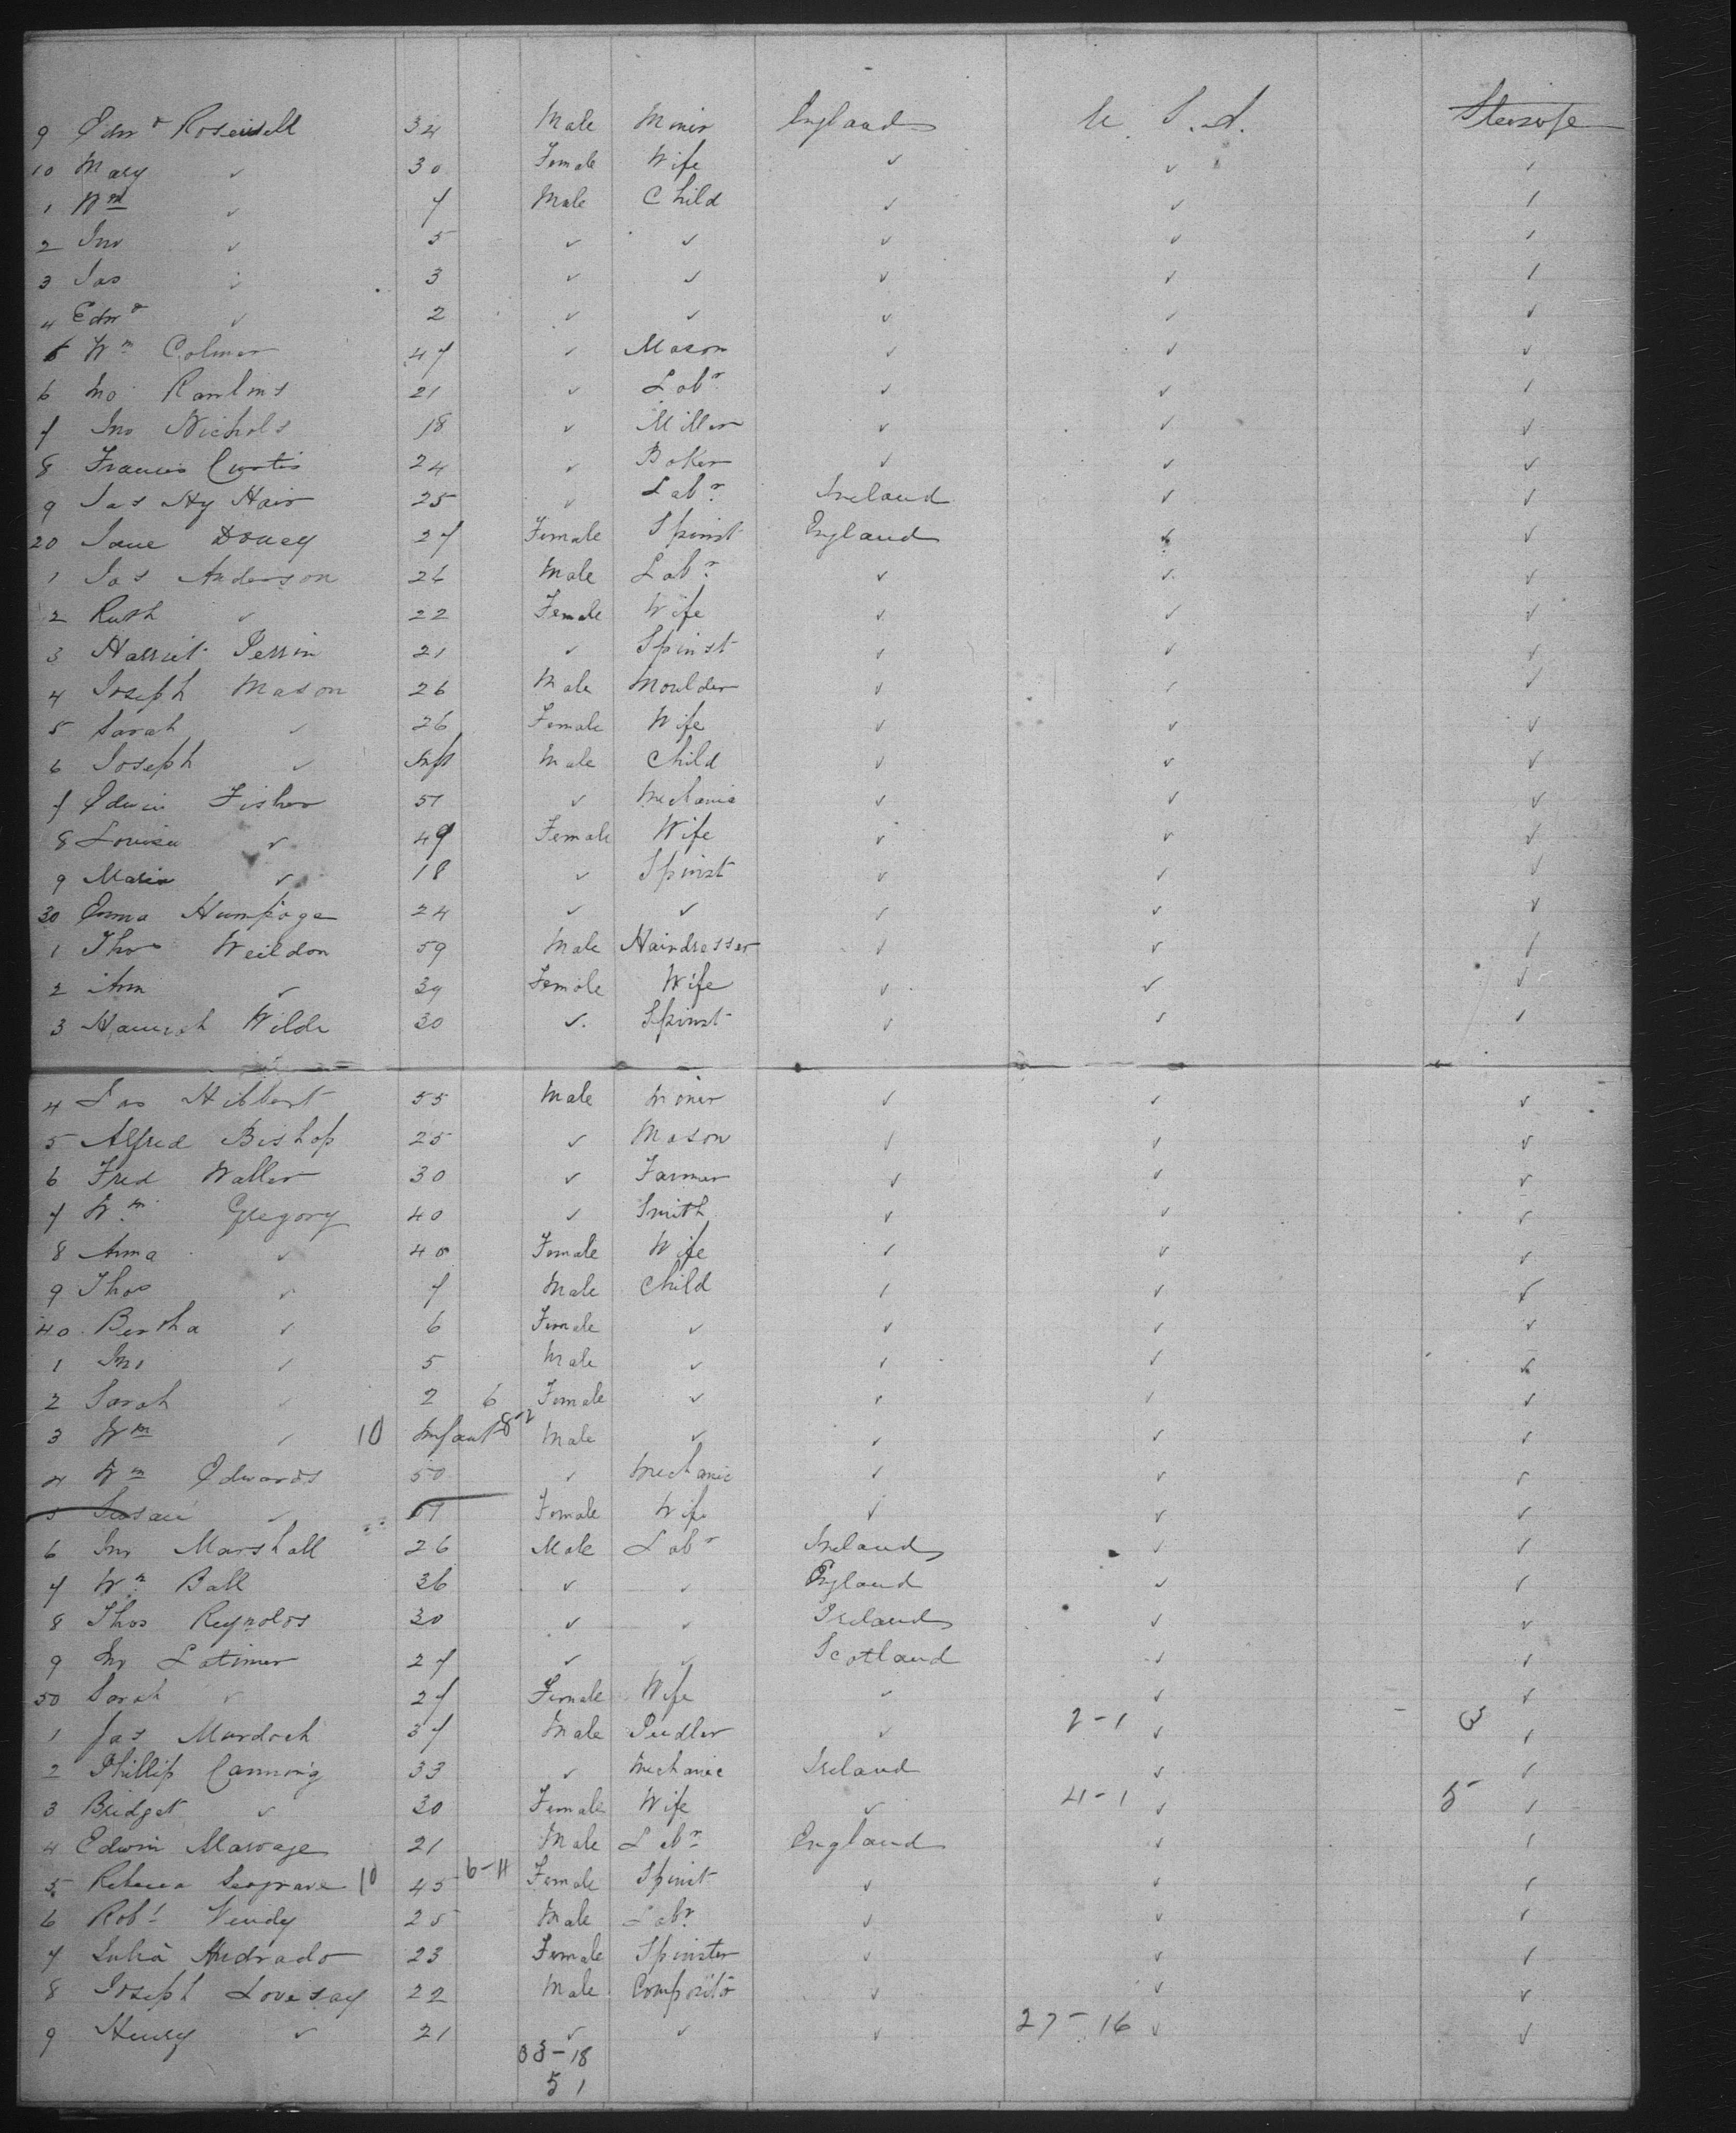 9 Edwd 34 Male Miner England U. S. A. Steerage
10 Mary ✓ 30 Female Wife ✓ ✓ ✓
1 Wm ✓ 7 Male Child ✓ ✓ ✓
2 Jno ✓ 5 ✓ ✓ ✓ ✓ ✓
3 Jas ✓ 3 ✓ ✓ ✓ ✓ ✓
4 Edwd ✓ 2 ✓ ✓ ✓ ✓ ✓
5 Wm Colmer 47 ✓ Mason ✓ ✓ ✓
6 Jno Rawlins 21 ✓ Labr ✓ ✓ ✓
7 Jno Nichols 18 ✓ Miller ✓ ✓ ✓
8 Francis Curtis 24 ✓ Baker ✓ ✓ ✓
9 Jas Hy Hair 25 ✓ Labr Ireland ✓ ✓
20 Jane 27 Female Spinst England ✓ ✓
1 Jas Anderson 26 Male Labr ✓ ✓ ✓
2 Ruth ✓ 22 Female Wife ✓ ✓ ✓
3 Harriet Perrin 21 ✓ Spinst ✓ ✓ ✓
4 Joseph Mason 26 Male Moulder ✓ ✓ ✓
5 Sarah ✓ 26 Female Wife ✓ ✓ ✓
6 Joseph ✓ Inft Male Child ✓ ✓ ✓
7 Edwin Fisher 51 ✓ Mechanic ✓ ✓ ✓
8 Louisa ✓ 49 Female Wife ✓ ✓ ✓
9 Maria ✓ 18 ✓ Spinst ✓ ✓ ✓
30 Emma Humpage 24 ✓ ✓ ✓ ✓ ✓
1 Thos Weildon 59 Male Hairdresser ✓ ✓ ✓
2 Ann ✓ 39 Female Wife ✓ ✓ ✓
3 Hannah Wilde 30 ✓ Spinst ✓ ✓ ✓
4 Hibbert 55 Male Miner ✓ ✓ ✓
5 Alfred Bishop 25 ✓ Mason ✓ ✓ ✓
6 Fred Waller 30 ✓ Farmer ✓ ✓ ✓
7 Wm Gregory 40 ✓ Smith ✓ ✓ ✓
8 Anna ✓ 40 Female Wife ✓ ✓ ✓
9 Thos ✓ 7 Male Child ✓ ✓ ✓
40 Bertha ✓ 6 Female ✓ ✓ ✓ ✓
1 Jno ✓ 5 Male ✓ ✓ ✓ ✓
2 Sarah ✓ 2 6 Female ✓ ✓ ✓ ✓
3 Wm ✓ 10 Infant 8-2 Male ✓ ✓ ✓ ✓
4 Wm Edwards 50 ✓ Mechanic ✓ ✓ ✓
5 Susan ✓ 51 Female Wife ✓ ✓ ✓
6 Jno Marshall 26 Male Labr Ireland ✓ ✓
7 Wm Ball 36 ✓ ✓ England ✓ ✓
8 Thos Reynolds 30 ✓ ✓ Ireland ✓ ✓
9 Jno Latimer 27 ✓ ✓ Scotland ✓ ✓
50 Sarah ✓ 27 Female Wife ✓ ✓ ✓
1 Jas Murdoch 37 Male Pudler ✓ 2-1 ✓ - 3 ✓
2 Phillip Canning 33 ✓ Mechanic Ireland ✓ ✓
3 Bridget ✓ 30 Female Wife ✓ 4-1 ✓ 5 ✓
4 Edwin 21 Male Labr England ✓ ✓
5 Rebecca Seagrave 10 45 6-4 Female Spinst ✓ ✓ ✓
6 Robt 25 Male Labr ✓ ✓ ✓
7 Julia 23 Female Spinster ✓ ✓ ✓
8 Joseph Lovesay 22 Male Composito ✓ ✓ ✓
9 Henry ✓ 21 ✓ ✓ ✓ 27-16 ✓ ✓
33-18
51